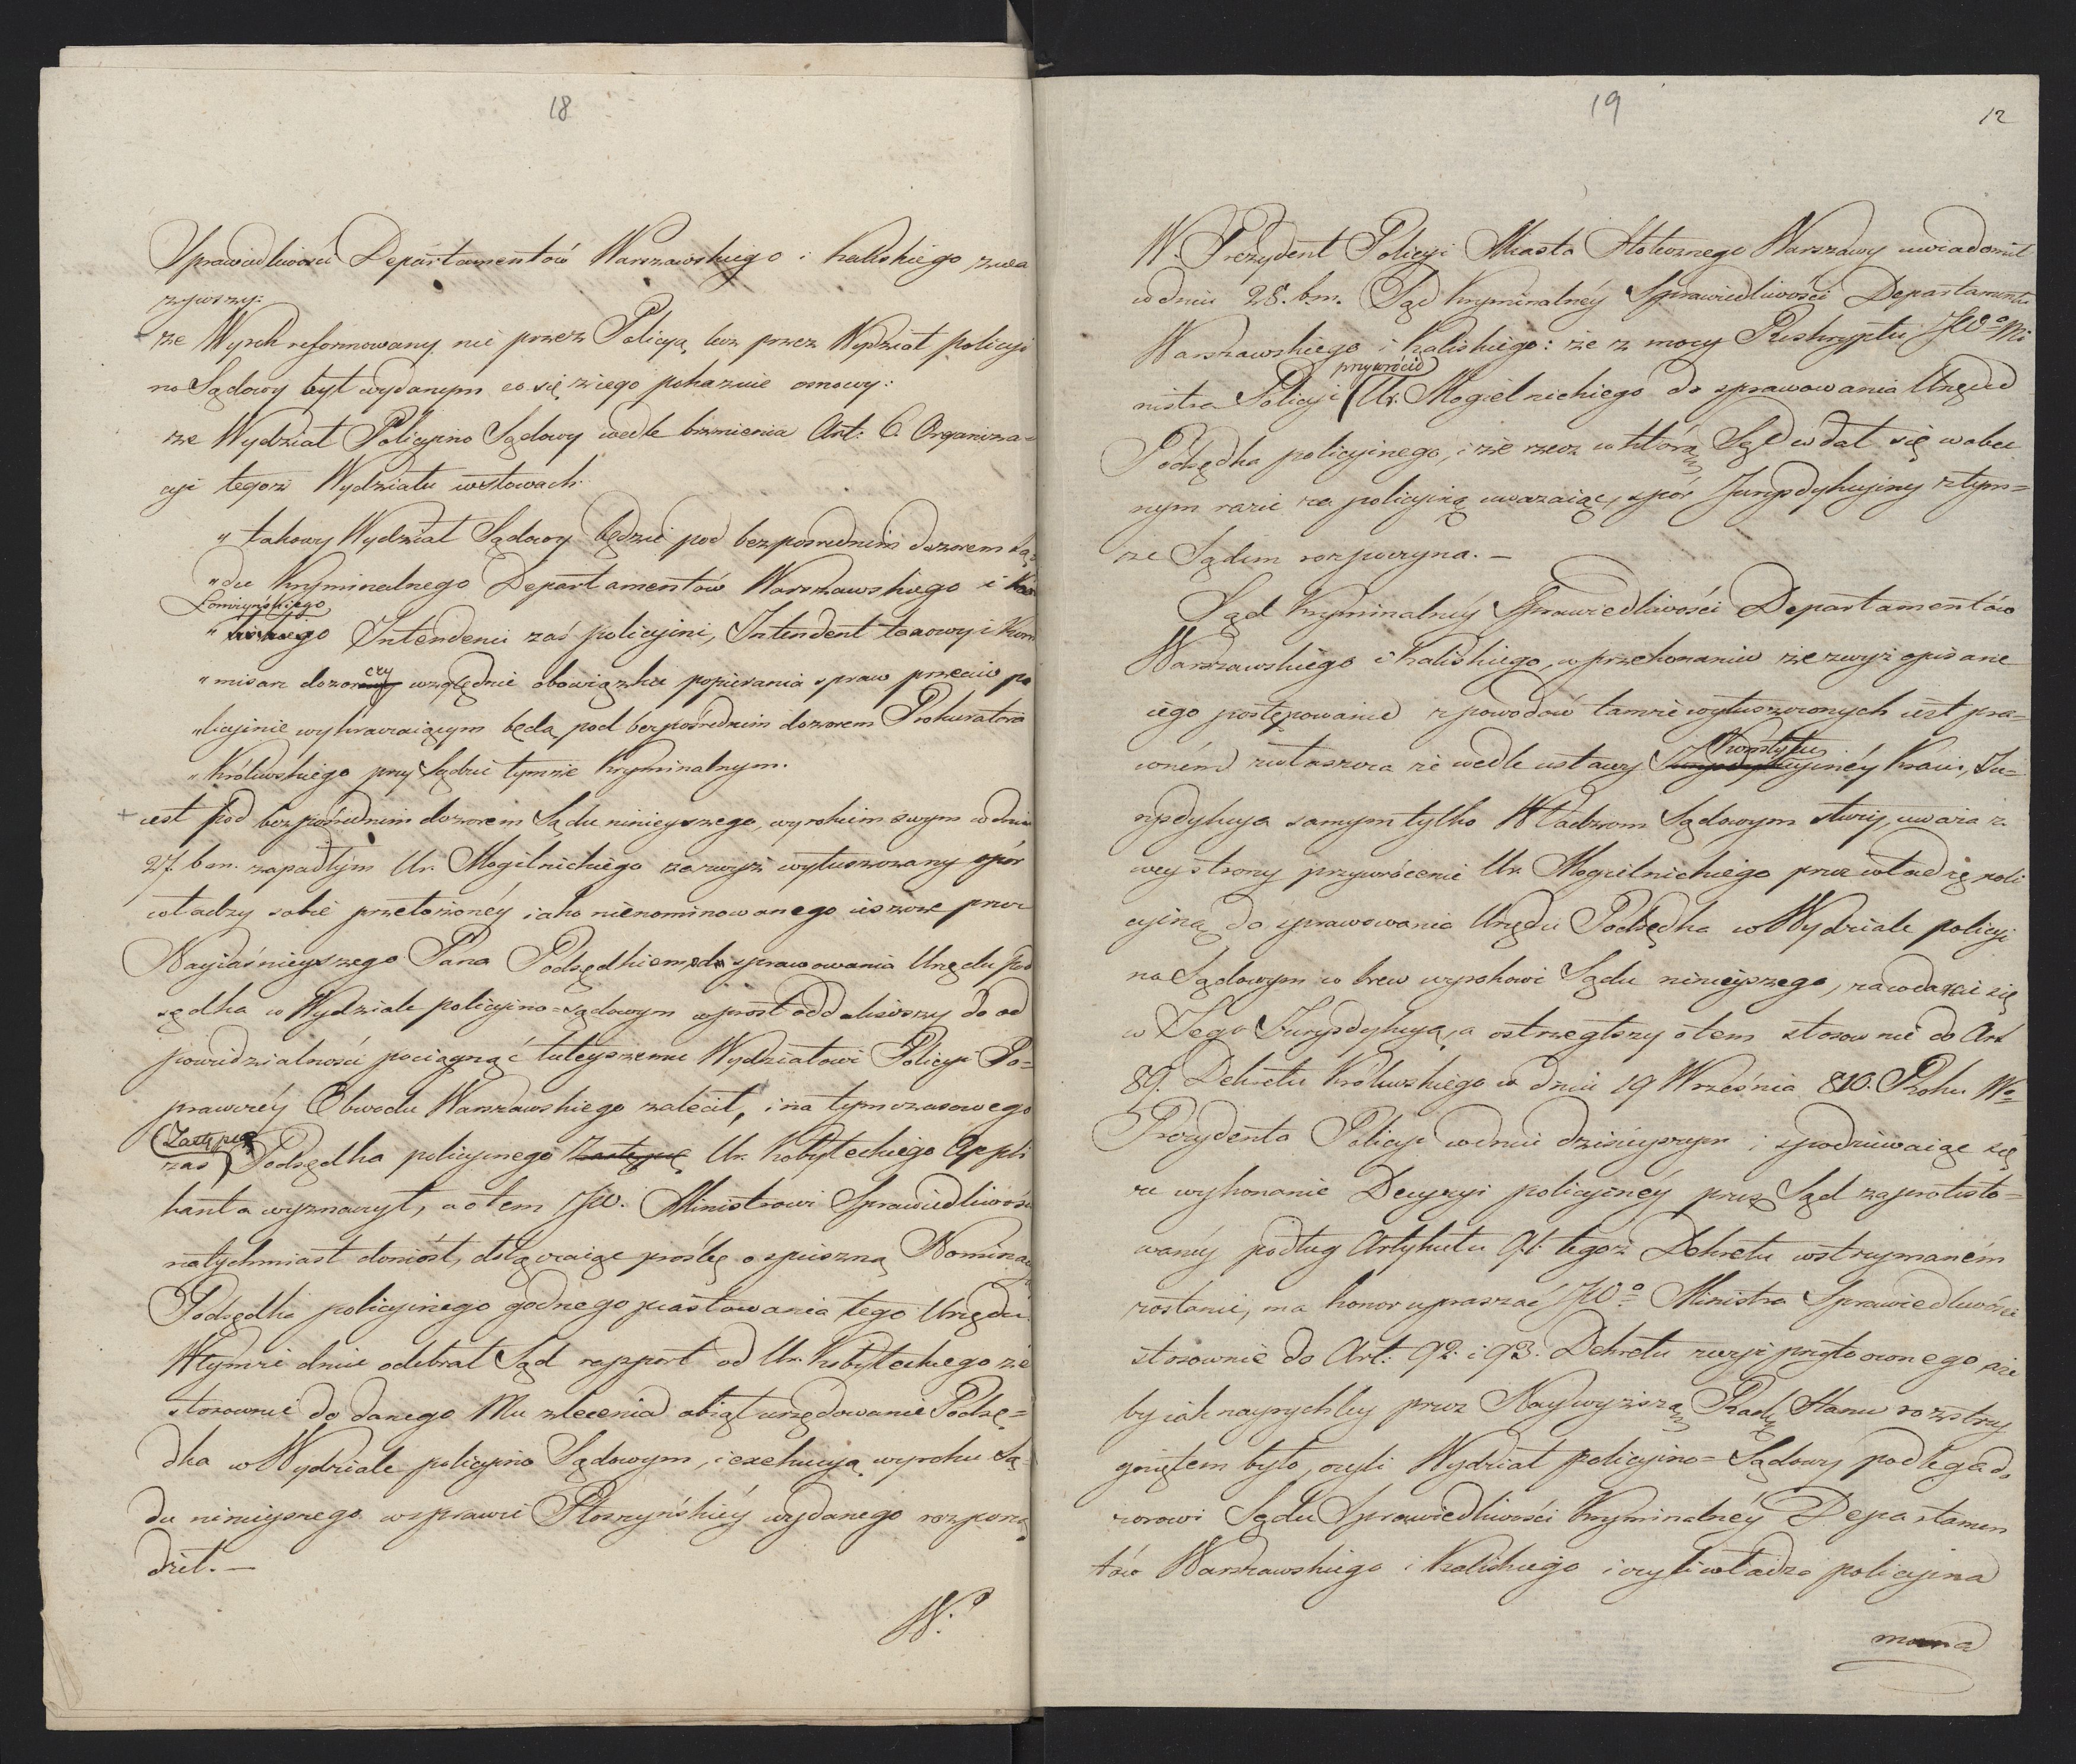 18
Sprawiedliwości Departamentów Warszawskiego i Kaliskiego zwa
żywszy:
że Wyrok reformowany nie przez Policyą lecz przez Wydział policyi
no Sądowy był wydanym co się z iego pokazuie osnowy:
że Wydział Policyino Sądowy wedle brzmienia Art: 6. Organiza=
cyi tegoż Wydziału w słowach:
" takowy Wydział Sądowy będzie pod bezpośrednim dozorem Są=
" du Kryminalnego Departamentów Warszawskiego i
Łomżyńskiego
" Intendenci zaś policyini, Intendent targowy i Kom
" misarz dozorczy względnie obowiązku popierania spraw przeciw po
" licyinie wykraczaiącym będą pod bezpośrednim dozorem Prokuratora
" Królewskiego przy Sądzie tymże Kryminalnym.
+ iest pod bezpośrednim dozorem Sądu ninieyszego, wyrokiem swym w dniu
27. b.m. zapadłym Ur. Mogilnickiego za zwyż wytuszczony spór
władzy sobie przełożoney iako nienominowanego ieszcze przez
Nayiaśnieyszego Pana Podsędkiem, od sprawowania Urzędu Pod
sędka w Wydziale policyino=sądowym wprost oddaliwszy do od
powiedzialności pociągnąć tuteyszemu Wydziałowi Policyi Po=
prawczey Obwodu Warszawskiego zalecił, i na tymczasowego
zaś Zastępcę Podsędka policyinego Zastępcę Ur. Kobyłeckiego Appli
kanta wyznaczył, a o tem JW. Ministrowi Sprawiedliwości
natychmiast doniósł, dołączaiąc prośbę o spieszną Nominacyą
Podsędka policyinego godnego piastowania tego Urzędu.
W tymże dniu odebrał Sąd rapport od Ur. Kobyłeckiego że
stosownie do danego Mu zlecenia obiął urzędowanie Podsę=
dka w Wydziale policyino Sądowym, i exekucyą wyroku Są=
du ninieyszego w sprawie Płoszyńskiey wydanego rozporzą
dził. —
W.
19
12
W. Prezydent Policyi Miasta Stołecznego Warszawy uwiadomił
w dniu 28. b.m. Sąd Kryminalney Sprawiedliwości Departamentu
Warszawskiego i Kaliskiego: że z mocy Reskryptu JWo Mi
nistra Policyi przywrócił Ur. Mogielnickiego do sprawowania Urzędu
Podsędka policyinego, i że rzecz w którą Sąd wdał się w obec
nym razie za policyiną uważaiąc, spór Jurysdykcyiny z tym=
że Sądem rozpoczyna. —
Sąd Kryminalney Sprawiedliwości Departamentów
Warszawskiego i Kaliskiego, w przekonaniu że zwyż opisane
iego postępowanie z powodów tamże wytuszczonych iest pra=
wném zwłaszcza że wedle ustawy Konstytucyiney Kraiu, Ju=
rysdykcya samym tylko Władzom Sądowym służy, uważa z
swey strony przywrócenie Ur. Mogielnickiego przez władzę poli
cyiną do sprawowania Urzędu Podsędka w Wydziale policyi
no Sądowym w brew wyrokowi Sądu ninieyszego, za wdanie się
w Jego Jurysdykcyą, a ostrzegłszy o tem stosownie do Art
89. Dekretu Królewskiego w dniu 19 Września 810. Roku Wo
Prezydenta Policyi w dniu dzisieyszym i spodziewaiąc się
że wykonanie Decyzyi policyiney przez Sąd zaprotesto=
waney podług Artykułu 91. tegoż Dekretu wstrzymaném
zostanie, ma honor upraszać JWo Ministra Sprawiedliwości
stosownie do Art: 92. i 93. Dekretu zwyż przytoczonego aże
by iak nayrychley przez Naywyższą Radę Stanu rozstrzy
gniętem było, czyli Wydział policyino=Sądowy podlega do
zorowi Sądu Sprawiedliwości Kryminalney Departamen
tów Warszawskiego i Kaliskiego i czyli władza policyina